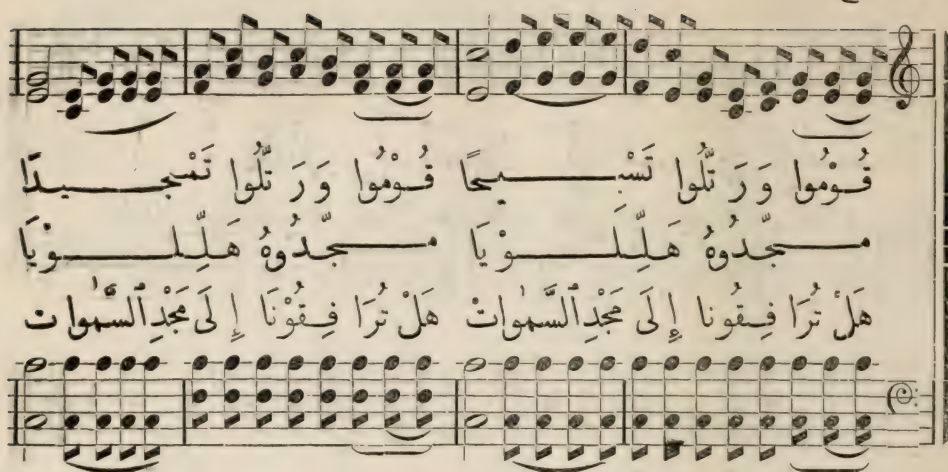 قُوْمُوا وَرَتِّلُوا تَسْبِيحًا قُوْمُوا وَرَتِّلُوا تَمْجِيدًا
مَجِّدُوهُ هَلِّلِلُوْيَا مَجِّدُوهُ هَلِّلِلُوْيَا
هَلْ تُرَا فِقُونَا إِلَى مَجْدِ ٱلسَّمٰوَاتْ هَلْ تُرَا فِقُوْنَا إِلَى مَجْدِ ٱلسَّمٰوَاتْ